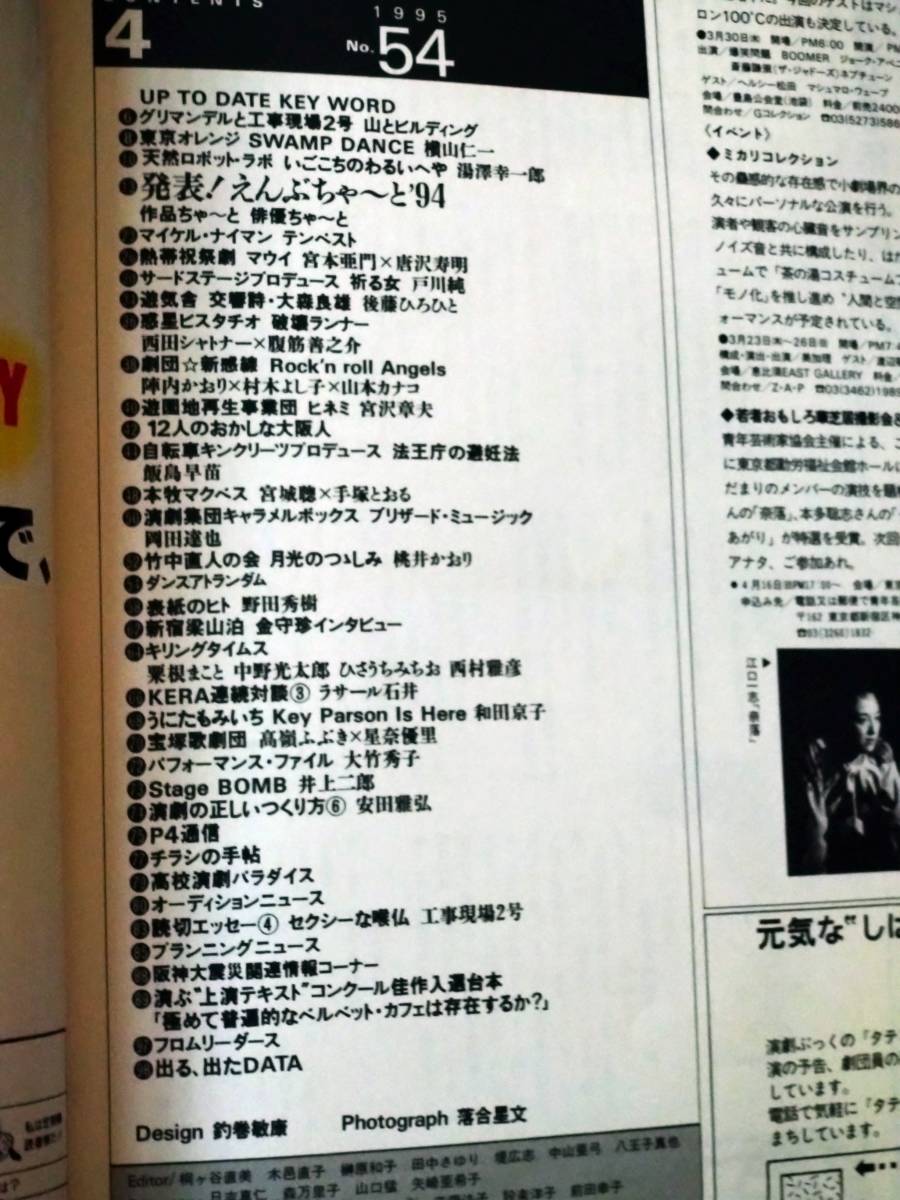 CONTENTS
4
1995
No.54
UP TO DATE KEY WORD
グリマンデルと工事現場2号 山とビルディング
東京オレンジ SWAMP DANCE 横山仁一
天然ロボット・ラボ いごこちのわるいへや 湯澤幸一郎
発表!えんぶちゃ〜と'94
作品ちゃ〜と 俳優ちゃ〜と
マイケル・ナイマン テンペスト
熱帯祝祭劇 マウイ 宮本亜門×唐沢寿明
サードステージプロデュース 祈る女 戸川純
遊気舎 交響詩・大森良雄 後藤ひろひと
惑星ピスタチオ 破壊ランナー
西田シャトナー×腹筋善之介
劇団☆新感線 Rock'n roll Angels
陣内かおり×村木よし子×山本カナコ
遊園地再生事業団 ヒネミ 宮沢章夫
12人のおかしな大阪人
自転車キンクリーツプロデュース 法王庁の避妊法
飯島早苗
本牧マクベス 宮城聰×手塚とおる
演劇集団キャラメルボックス ブリザード・ミュージック
岡田達也
竹中直人の会 月光のつゝしみ 桃井かおり
ダンスアトランダム
表紙のヒト 野田秀樹
新宿梁山泊 金守珍インタビュー
キリングタイムス
粟根まこと 中野光太郎 ひさうちみちお 西村雅彦
KERA連続対談③ ラサール石井
うにたもみいち Key Parson Is Here 和田京子
宝塚歌劇団 高嶺ふぶき×星奈優里
パフォーマンス・ファイル 大竹秀子
Stage BOMB 井上二郎
演劇の正しいつくり方⑥ 安田雅弘
P4通信
チラシの手帖
高校演劇パラダイス
オーディションニュース
読切エッセー④ セクシーな喉仏 工事現場2号
プランニングニュース
阪神大震災関連情報コーナー
演ぶ"上演テキスト"コンクール佳作入選台本
「極めて普遍的なベルベット・カフェは存在するか?」
フロムリーダース
出る、出たDATA
Design 釣巻敏康 Photograph 落合星文
Editor/桐ヶ谷直美 木邑直子 榊原和子 田中さゆり 堤広志 中山亜弓 八王子真也
日吉真仁 森万里子 山口猛 矢崎亜希子
ロン100℃の出演も決定している。
●3月30日㊍ 開場/PM6:00 開演/PM
出演/爆笑問題 BOOMER ジョーク・アベニ
ゲスト/ヘルシー松田 マシュマロ・ウェーブ
会場/豊島公会堂(池袋) 料金/前売2400
問合わせ/Gコレクション ☎03(5273)586
〈イベント〉
◆ミカリコレクション
その蠱惑的な存在感で小劇場界の
久々にパーソナルな公演を行う。
演者や観客の心臓音をサンプリン
ノイズ音と共に構成したり、はた
ュームで「茶の湯コスチューム
「モノ化」を推し進め"人間と空
ォーマンスが予定されている。
●3月23日㊍〜26日㊐ 開場/PM7:
構成・演出・出演/美加理 ゲスト/渡辺
会場/恵比須EAST GALLERY 料金/
問合わせ/Z・A・P ☎03(3462)198
◆若者おもしろ華芝居撮影会
青年芸術家協会主催による、こ
に東京都勤労福祉会館ホールに
だまりのメンバーの演技を
んの「奈落」、本多聡志さんの「
あがり」が特選を受賞。次回
アナタ、ご参加あれ。
申込み先/電話又は郵便で青年
〒162 東京都新宿区神
☎03(3260)1832
江口一志「奈落」
元気な"しば
演劇ぶっくの『タテ
演の予告、劇団員の
しています。
電話で気軽に『タテ
まちしています。
Y
で、